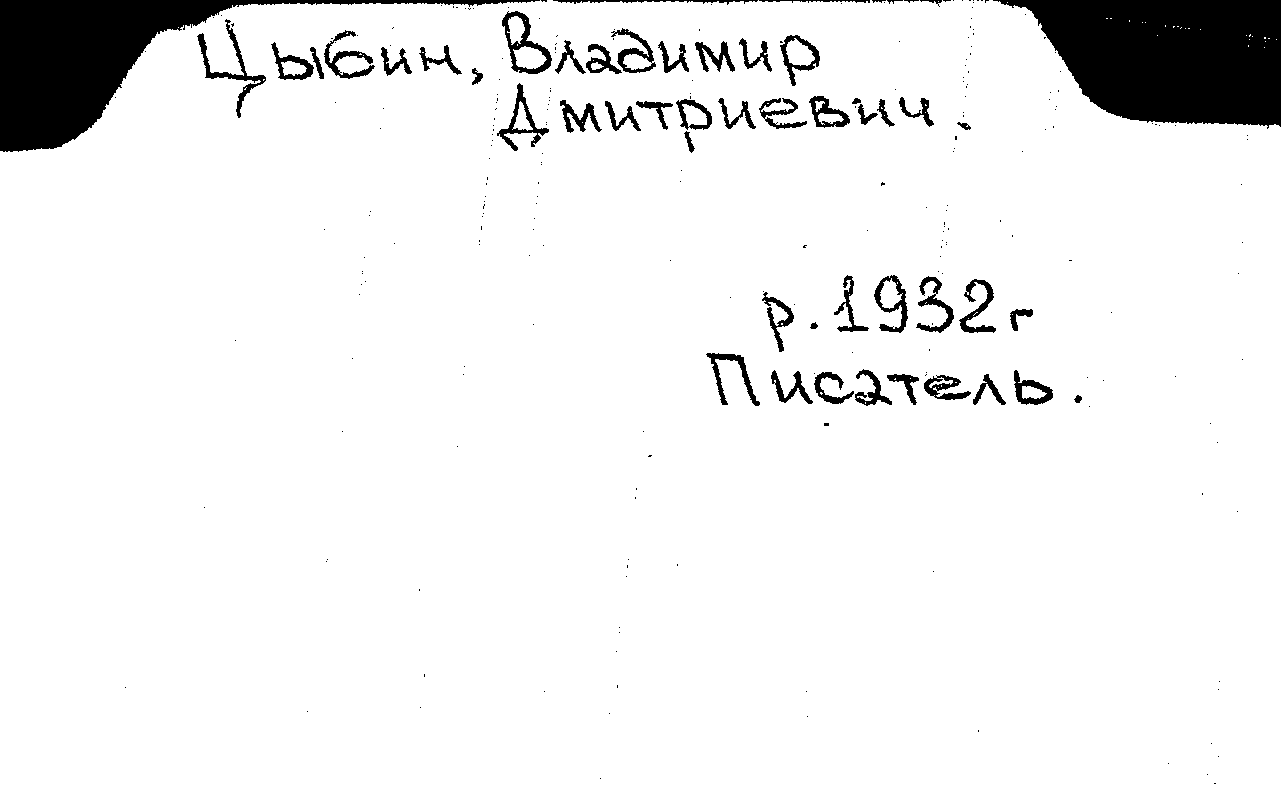 Цыбин, Владимир
Дмитриевич.
р. 1932 г
Писатель.